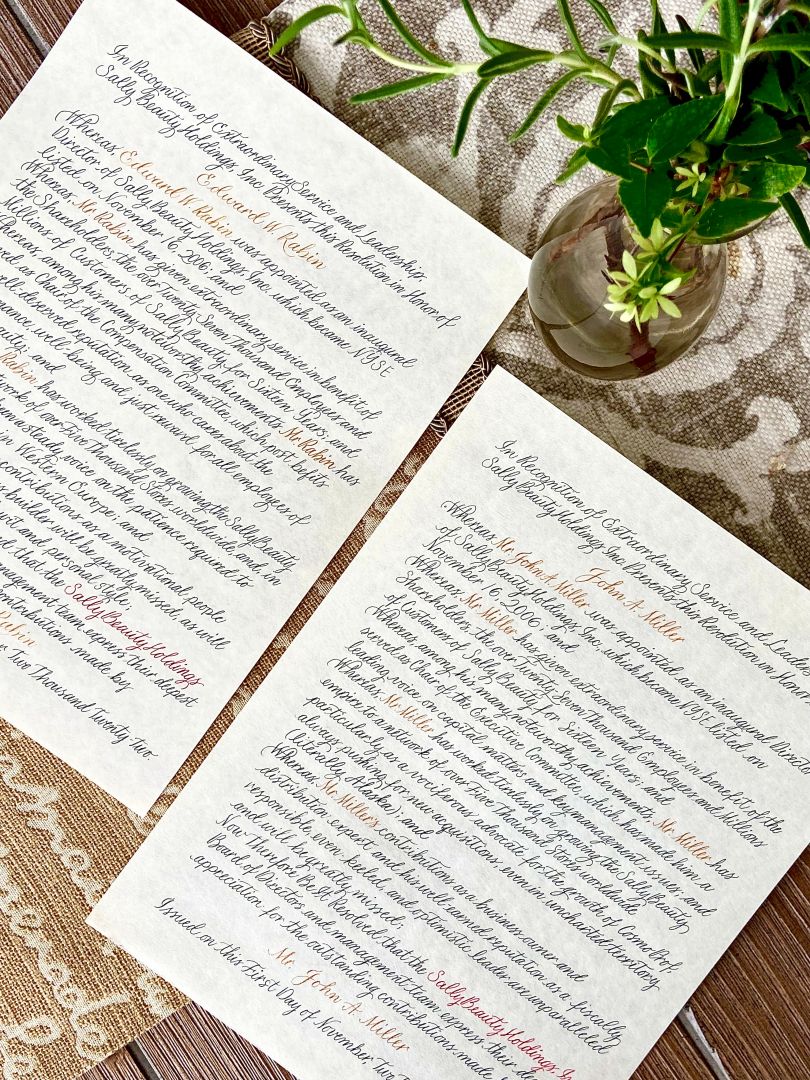 In Recognition of Extraordinary Service and Leadership,
Sally Beauty Holdings, Inc. Presents this Resolution in Honor of
Edward W Rabin
Whereas Edward W Rabin was appointed as an inaugural
Director of Sally Beauty Holdings, Inc. which became NYSE
listed on November 16, 2006; and
Whereas, Mr Rabin has given extraordinary service in benefit of
the Shareholders, the over Twenty Seven Thousand Employees and
Millions of Customers of Sally Beauty, for Sixteen Years; and
Whereas, among his many noteworthy achievements, Mr Rabin has
as Chair of the Compensation Committee, which post befits
well-deserved reputation as one who cares about the
well-being and just reward for all employees of
and
Rabin has worked tirelessly on growing the Sally Beauty
of over Five Thousand Stores worldwide, and, in
a steady voice on the patience required to
in Western Europe; and
contributions as a motivational, people
builder will be greatly missed, as will
and personal style;
that the Sally Beauty Holdings
team express their deepest
contributions made by
Rabin
Two Thousand Twenty Two
In Recognition of Extraordinary Service and
Sally Beauty Holdings, Inc. Presents this Resolution in
John A Miller
Whereas Mr John A Miller was appointed as an inaugural
of Sally Beauty Holdings, Inc. which became NYSE listed on
November 16, 2006; and
Whereas, Mr. Miller has given extraordinary service in benefit of the
Shareholders, the over Twenty Seven Thousand Employees and Millions
of Customers of Sally Beauty, for Sixteen Years; and
Whereas, among his many noteworthy achievements, Mr Miller has
served as Chair of the Executive Committee, which has made him a
leading voice on capital matters and key management issues; and
Whereas, Mr Miller has worked tirelessly on growing the Sally Beauty
empire to a network of over Five Thousand Stores worldwide
particularly as a vociferous advocate for the growth of CosmoProf,
always pushing for new acquisitions even in uncharted territory
(literally Alaska); and
Whereas, Mr Miller's contribution as a business owner and
distribution expert and his well-earned reputation as a fiscally
responsible, even-keeled, and optimistic leader are unparalleled
and will be greatly missed;
Now Therefore Be it Resolved that the Sally Beauty Holdings
Board of Directors and management team express their
appreciation for the outstanding contributions made
Mr. John A Miller
Issued on this First Day of November, Two